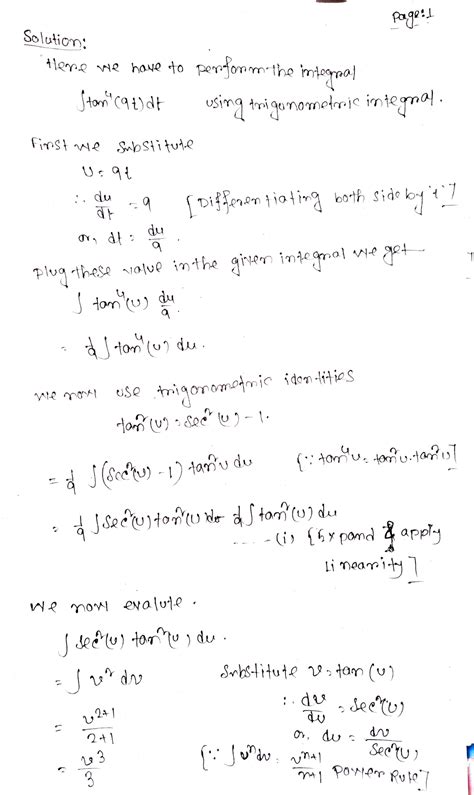 Page:1
Solution:
Here we have to perform the integral
∫tan⁴(9t)dt using trigonometric integral.
First we substitute
u = 9t
∴ du/dt = 9 [Differentiating both side by 't']
or, dt = du/9.
Plug these value in the given integral we get
∫ tan⁴(u) du/9.
= 1/9 ∫ tan⁴(u) du.
we now use trigonometric identities
tan²(u) = sec²(u) - 1.
= 1/9 ∫(sec²(u) - 1) tan²u du {∵ tan⁴u = tan²u.tan²u]
= 1/9 ∫sec²(u) tan²(u) du - 1/9 ∫tan²(u) du
-----(i) [Expand & apply
linearity]
we now evalute.
∫ sec²(u) tan²(u) du.
= ∫ v² dv Substitute v = tan(u)
∴ dv/du = sec²(u)
= v²⁺¹/2+1 or, du = dv/sec²(u)
= v³/3 {∵ ∫uⁿdu = uⁿ⁺¹/n+1 Power Rule]